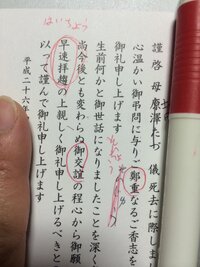 謹啓 母 儀 死去に際しま
心温かい御弔問に与り 鄭重なるご香志を
御礼申し上げます
生前何かと御世話になりましたことを深く
尚今後とも変わらぬ御交誼の程心から御願
早速拝趨の上親しく御礼申し上げるべきと
以て謹んで御礼申し上げます
平成二十六年
はいちよう